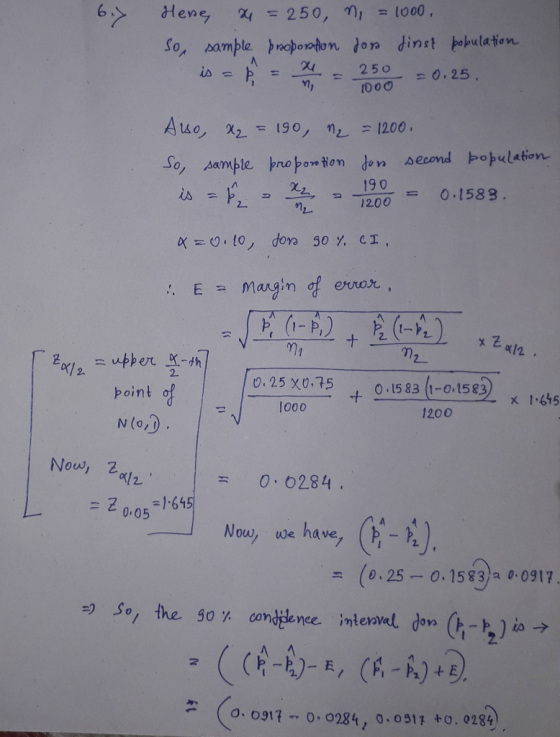 6.> Here, x₁ = 250, n₁ = 1000.
So, sample proportion for first population
is = p̂₁ = x₁/n₁ = 250/1000 = 0.25.
Also, x₂ = 190, n₂ = 1200.
So, sample proportion for second population
is = p̂₂ = x₂/n₂ = 190/1200 = 0.1583.
α = 0.10, for 90% CI.
∴ E = Margin of error.
= √(p̂₁(1-p̂₁)/n₁ + p̂₂(1-p̂₂)/n₂) × Z_α/2.
[Z_α/2 = upper α/2-th
point of
N(0,1).
Now, Z_α/2.
= Z_0.05 = 1.645]
= √(0.25×0.75/1000 + 0.1583(1-0.1583)/1200) × 1.645
= 0.0284.
Now, we have, (p̂₁ - p̂₂).
= (0.25 - 0.1583) = 0.0917.
⇒ So, the 90% confidence interval for (p₁-p₂) is →
= ((p̂₁-p̂₂)-E, (p̂₁-p̂₂)+E).
= (0.0917-0.0284, 0.0917+0.0284).